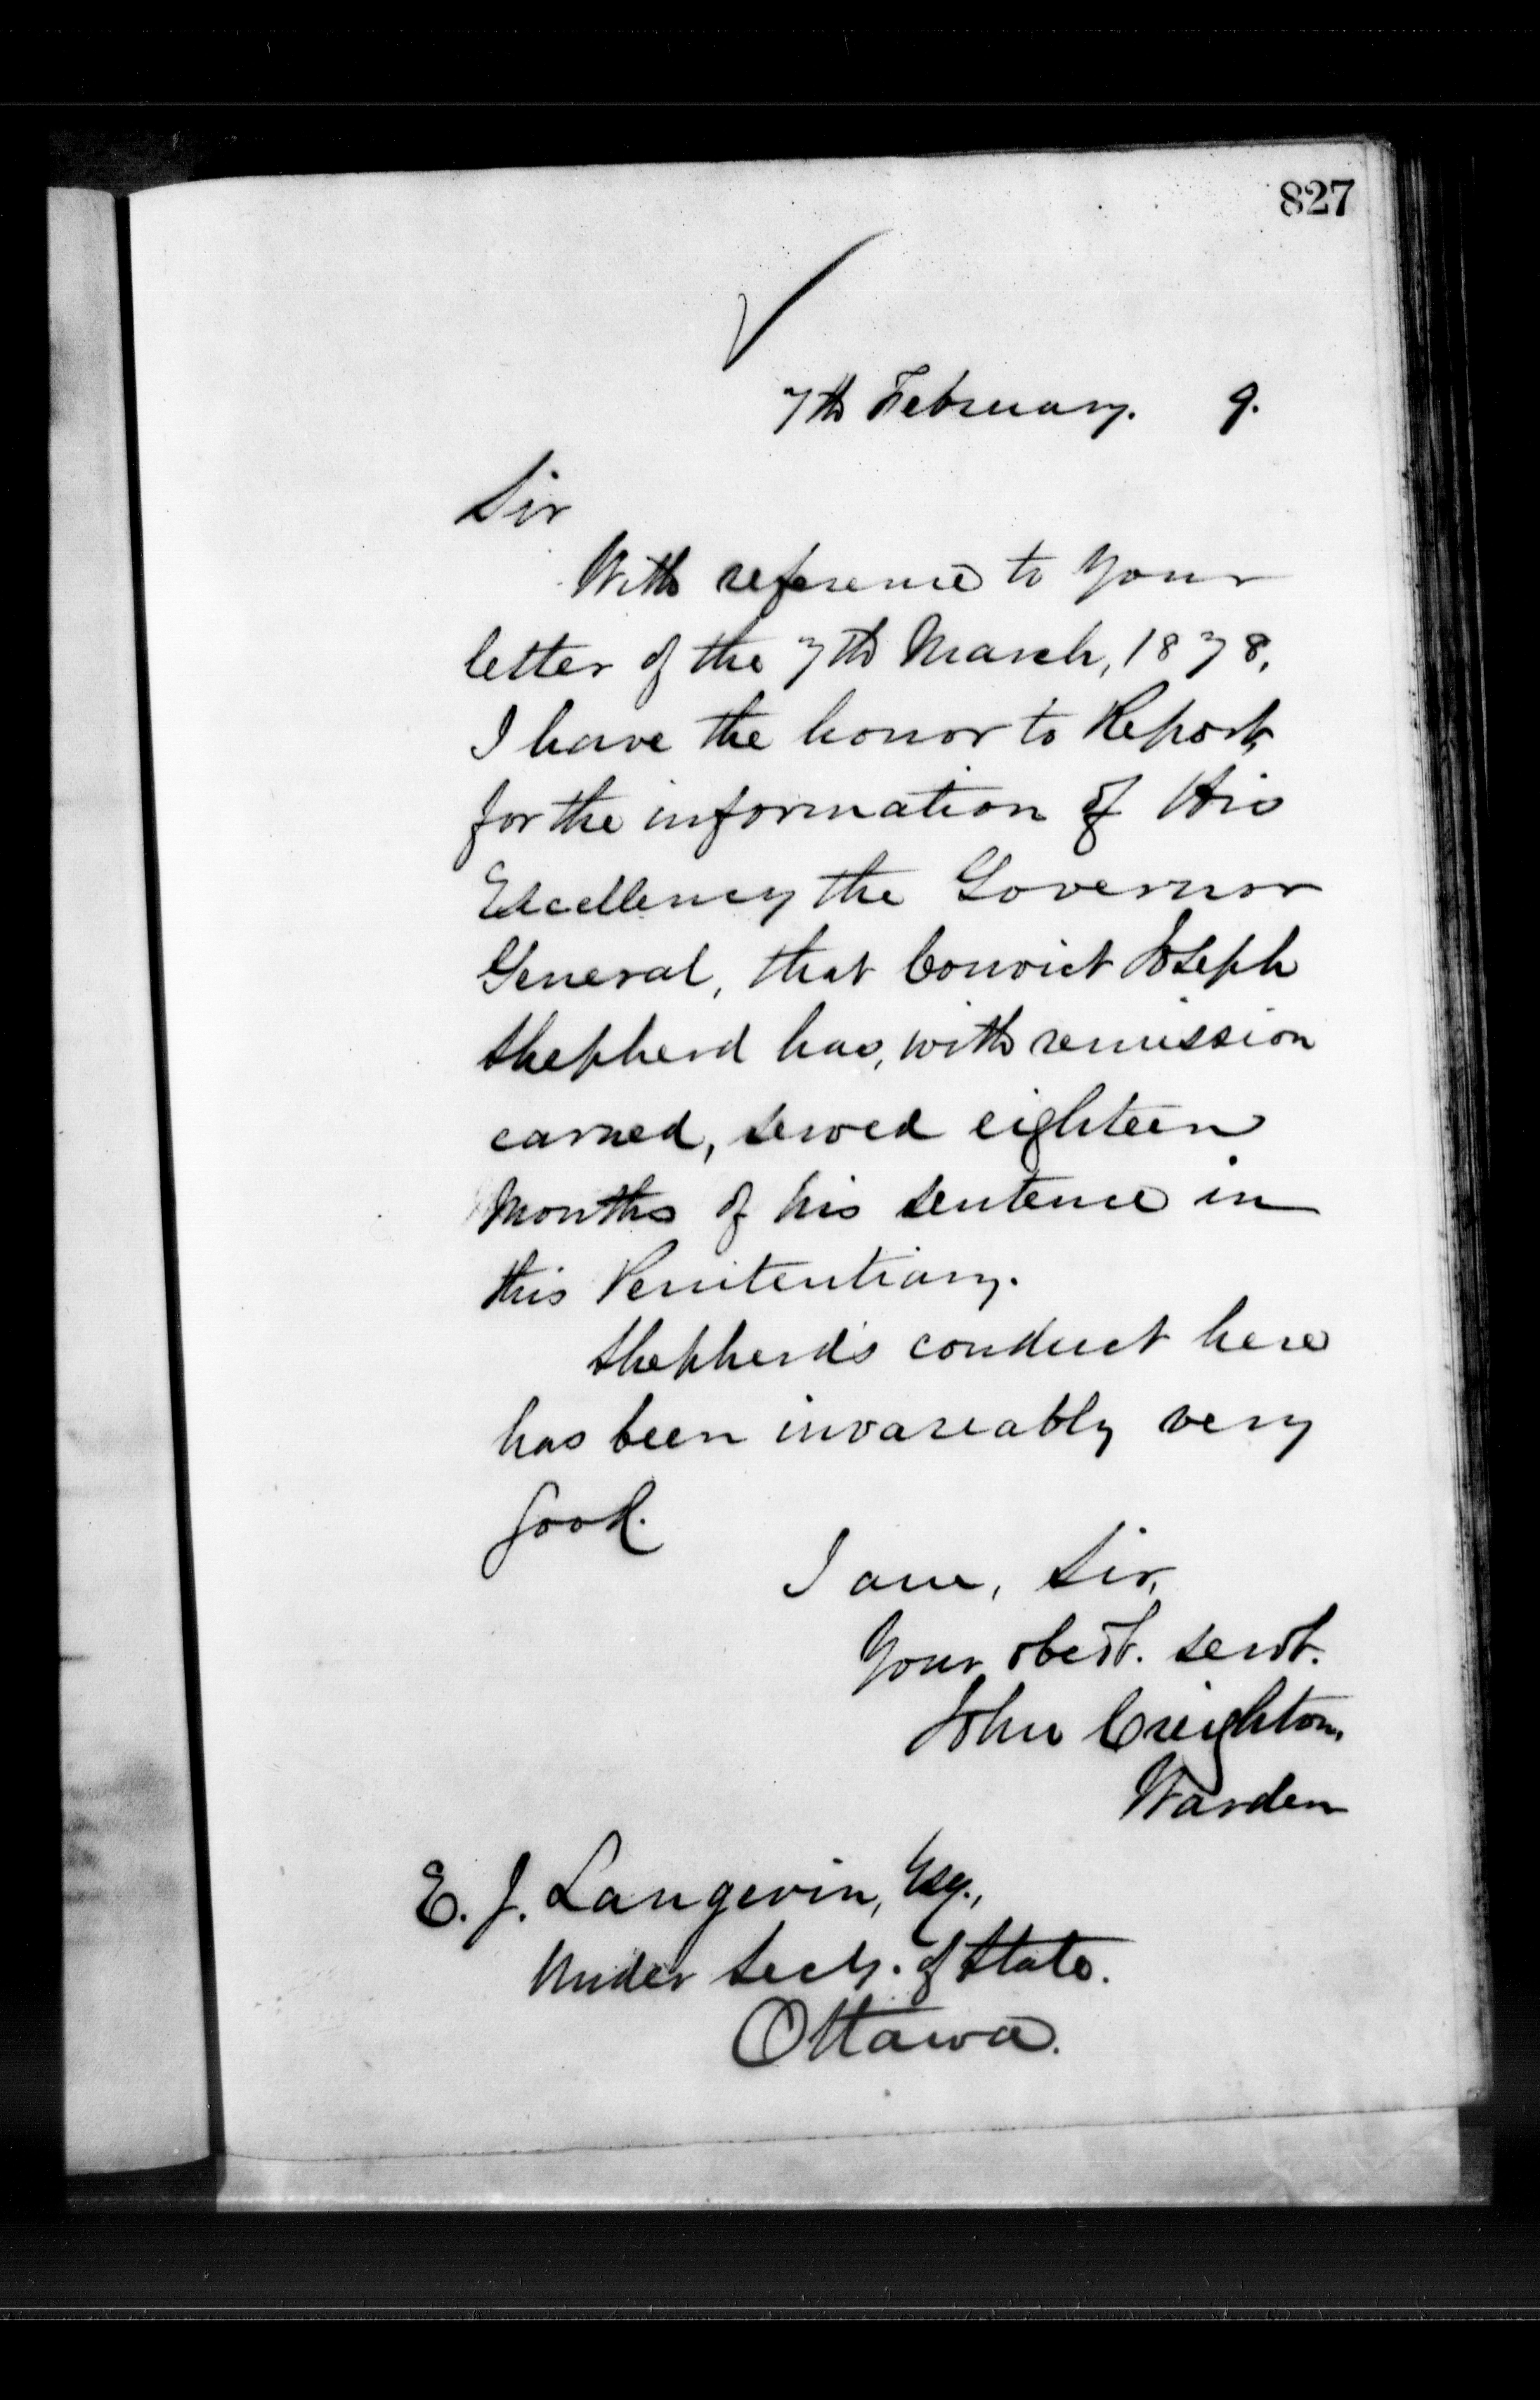 827
7th February. 9.
Sir
With reference to your
letter of the 7th March, 1878,
I have the honor to Report,
for the information of His
Excellency the Governor
General, that Convict Joseph
Shepherd has, with remission
earned, served eighteen
Months of his sentence in
this Penitentiary.
Shepherd's conduct here
has been invareably very
good.
I am, Sir,
Your obedt. servt.
John Creighton,
Warden
E. J. Langevin, Esq.,
Under Secy. of State.
Ottawa.